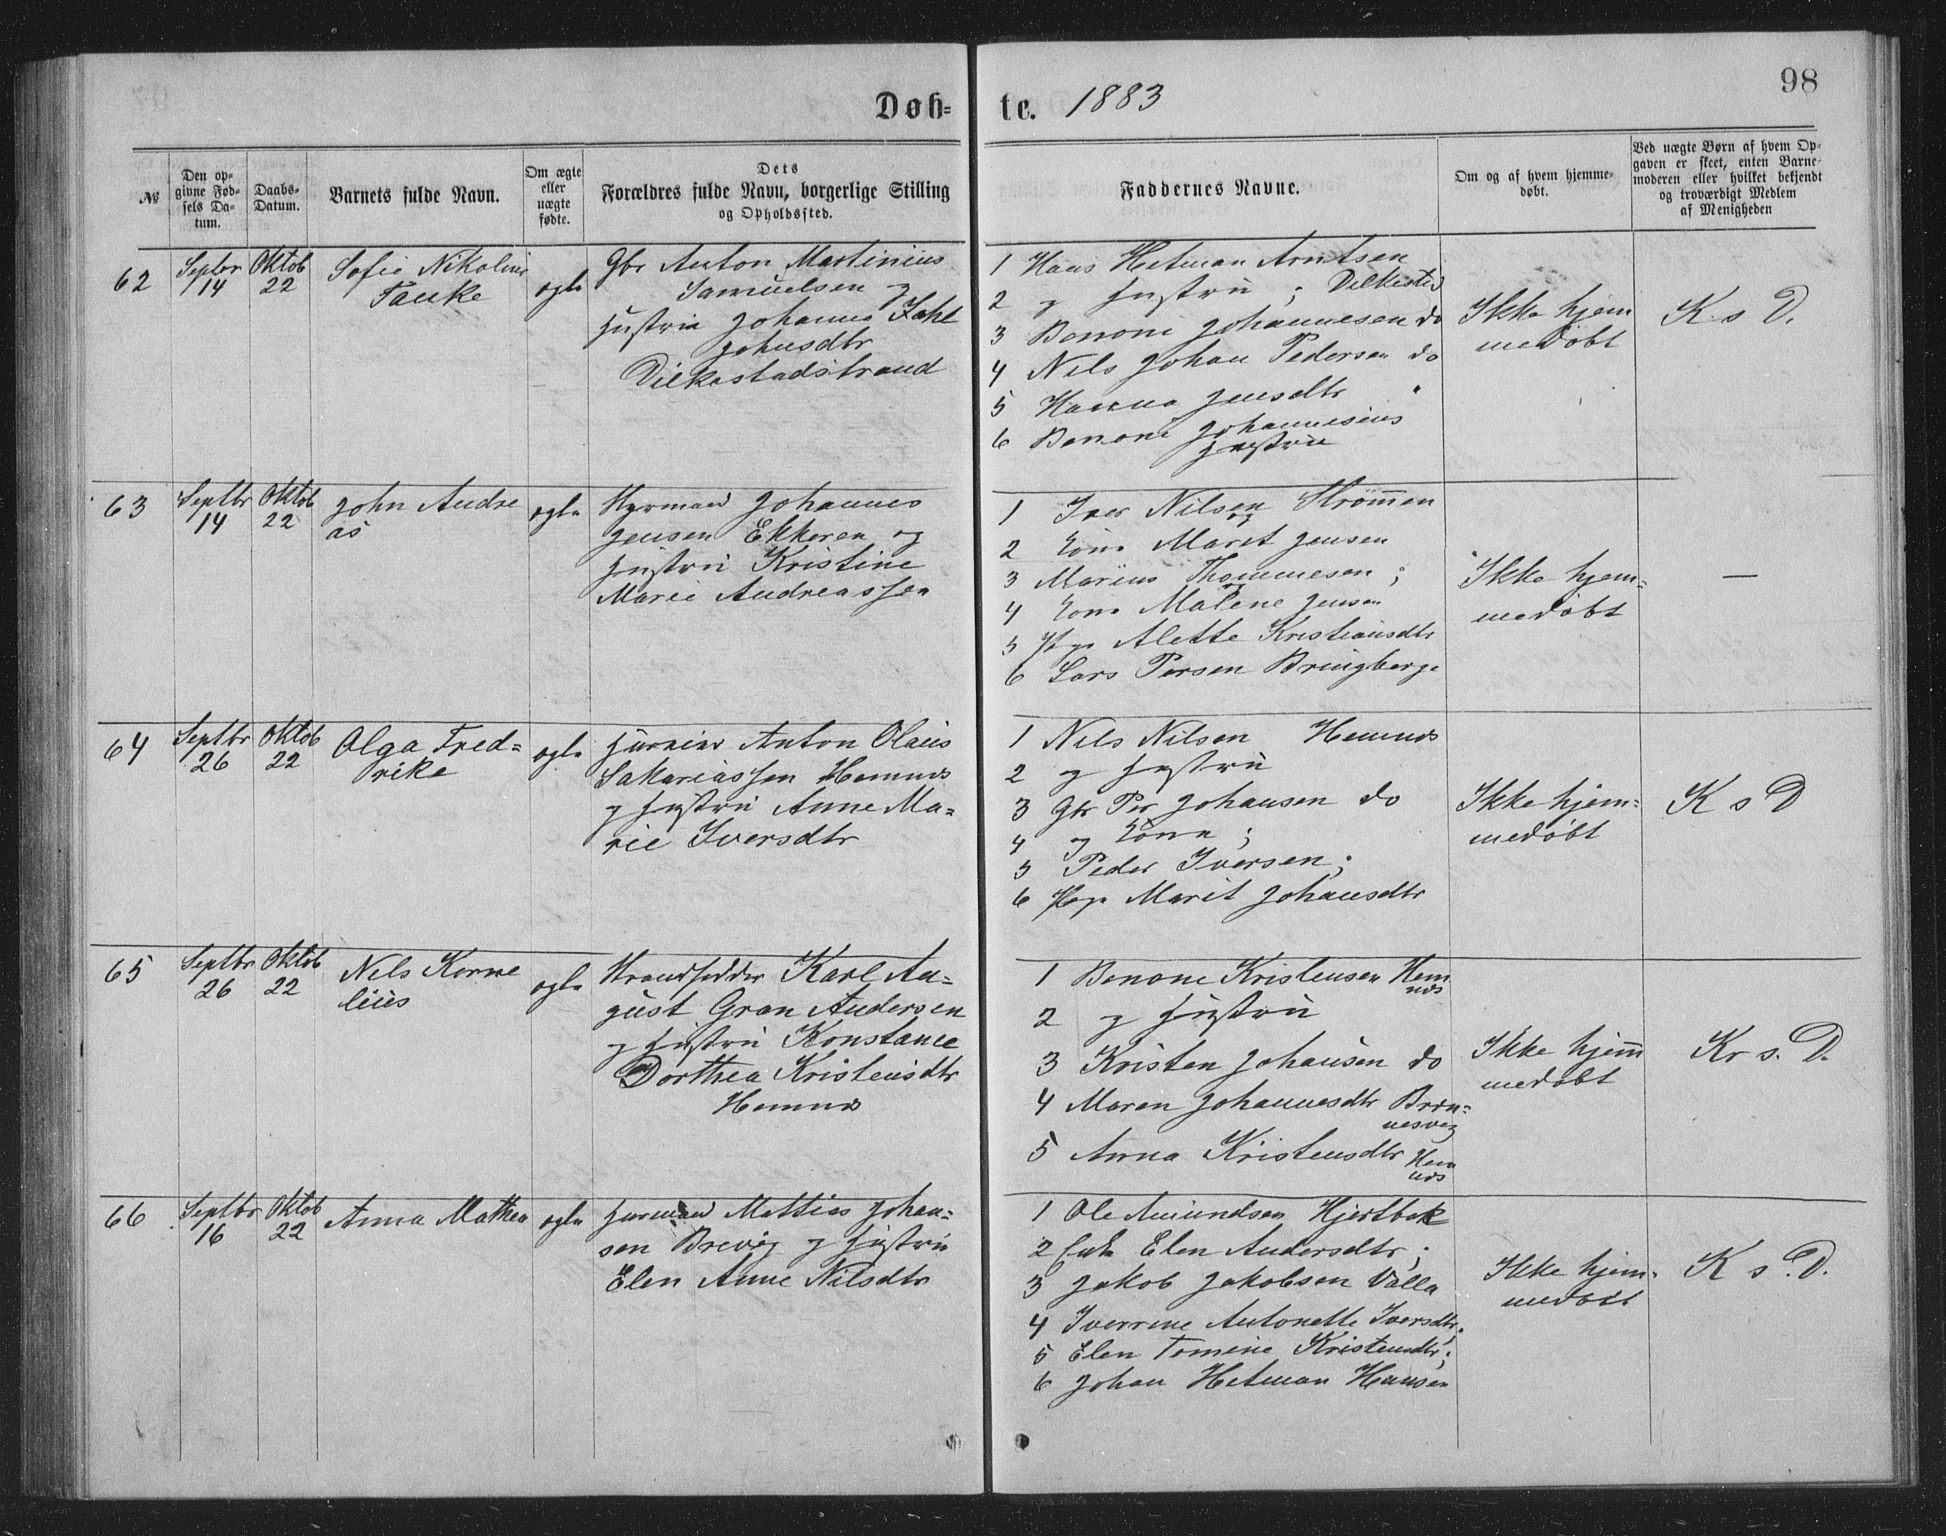 98
Døb= te. 1883
№
Den op-
givne Fød-
sels Da-
tum.
Daabs-
Datum.
Barnets fulde Navn.
Om ægte
eller
uægte
fødte.
Dets
Forældres fulde Navn, borgerlige Stilling
og Opholdssted.
Faddernes Navne.
Om og af hvem hjemme-
døbt.
Ved uægte Børn af hvem Op-
gaven er skeet, enten Barne-
moderen eller hvilket bekjendt
og troværdigt Medlem
af Menigheden
62
Septbr
14
Oktob
22
Sofie Nikoline
Fauke
egte
Gbr Anton Martinius
Samuelsen og
Hustru Johanna
Johnsdtr
Dilkestadstrand
1 Hans Hetman Arntsen
2 og Hustru ; Dilkested
3 Benoni Johannesen do
4 Nils Johan Pedersen do
5 Hanna Jensdtr "
6 Benoni Johannesens
Hustru
Ikke hjem
medøbt
K. s D.
63
Septbr
14
Oktob
22
John Andre
as
egte
Styrmand Johannes
Jensen Ekkeren og
Hustru Kristine
Marie Andreassen
1 Iver Nilsen Strømen
og
2 Kona Maret Jensen
3 Marius Thommesen ;
og
4 Kona Malene Jensen
5 Pige Alette Kristiansdtr
6 Lars Persen Bringberg.
Ikke hjem=
medøbt
—
64
Septbr
26
Oktob
22
Olga Fred=
rike
egte
Husmand Anton Olaus
Sakariassen Hemnes
og Hustru Anne Ma=
rie Iversdtr
1 Nils Nilsen Hemnes
2 og Hustru
3 Gbr Per Johansen do
4 og Kona ;
5 Peder Iversen ;
6 Pige Marit Johansdtr
Ikke hjem=
medøbt
K s D
65
Septbr
26
Oktob
22
Nils Korne
lius
egte
Strandsidder Karl Au=
gust Gran Andersen
og Hustru Konstance
Dorthea Kristensdtr
Hemnes
1 Benone Kristensen Hem
nes
2 og Hustru
3 Kristen Johansen do
4 Maren Johannesdtr Brøn=
nesvig
5 Anna Kristensdtr Hem
nes
Ikke hjem
medøbt
Kr s. D.
66
Septbr
16
Oktob
22
Anna Mathea
egte
Husmand Mattias Johan=
sen Brevig og Hustru
Elen Anne Nilsdtr
1 Ole Amundsen Hjertbak
2 Enke Elen Andersdtr ;
3 Jakob Jakobsen Valla
4 Iverine Antonette Iversdtr.
5 Elen Tomine Kristensdtr ;
6 Johan Hetman Hansen
Ikke hjem=
medøbt
K s. D.